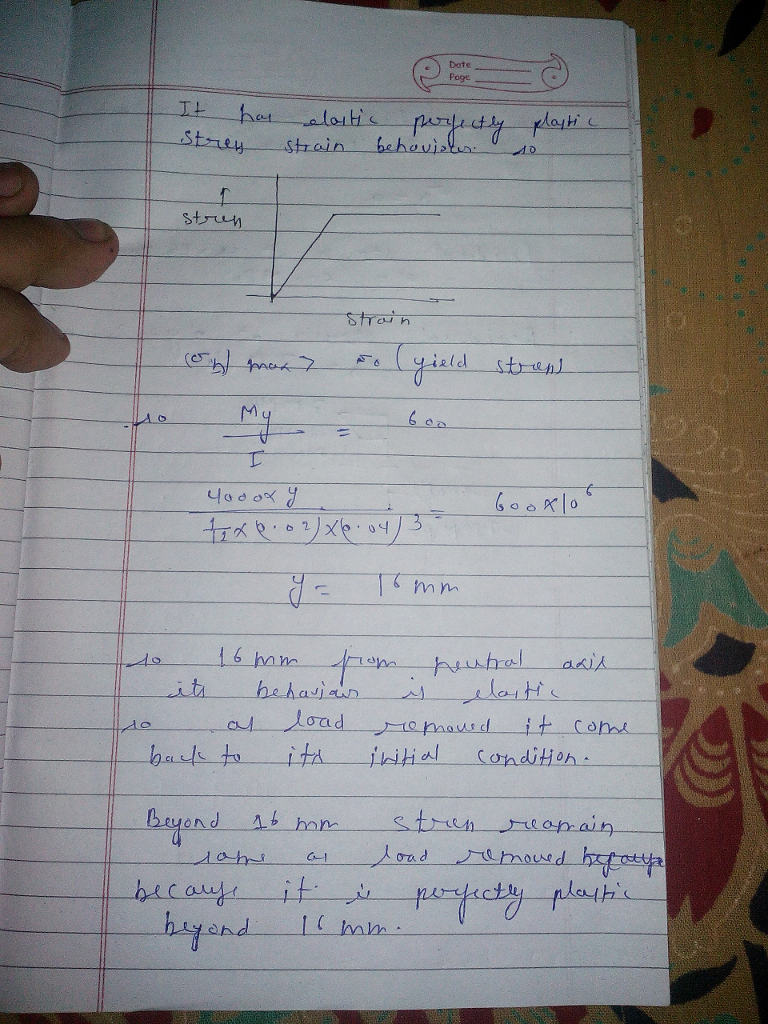 Date
Page
It has elastic perfectly plastic
stress strain behaviour. so
↑
stress
strain
(σb) max > σo (yield stress)
so My / I = 600
4000 x y / 1/12 x (0.02) x (0.04)3 = 600 x 10 6
y = 16 mm
so 16 mm from neutral axis
its behaviour is elastic
so as load removed it come
back to its initial condition.
Beyond 16 mm stress reamain
same as load removed because
because it is perfectly plastic
beyond 16 mm.